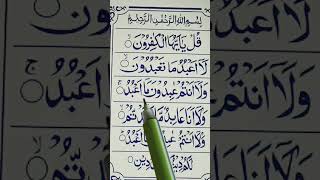 بِسْمِ اللهِ الرَّحْمٰنِ الرَّحِيْمِ
قُلْ يٰۤاَيُّهَا الْكٰفِرُوْنَ
لَاۤ اَعْبُدُ مَا تَعْبُدُوْنَ
وَلَاۤ اَنْتُمْ عٰبِدُوْنَ مَاۤ اَعْبُدُ
وَلَاۤ اَنَا عَابِدٌ مَّا
وَلَاۤ اَنْتُمْ عٰبِدُوْنَ مَاۤ اَعْبُدُ
لَكُمْ دِيْنُكُمْ